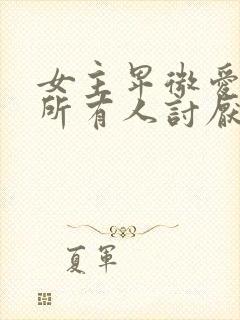 女主卑微愛
所有人討厭
夏軍